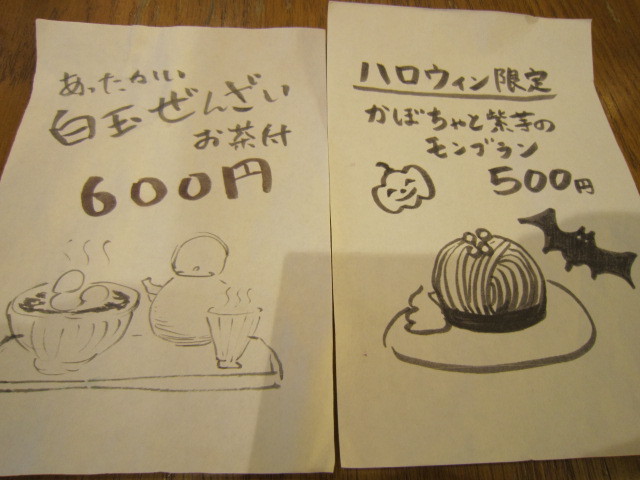 あったかい
白玉ぜんざい
お茶付
600円
ハロウィン限定
かぼちゃと紫芋の
モンブラン
500円